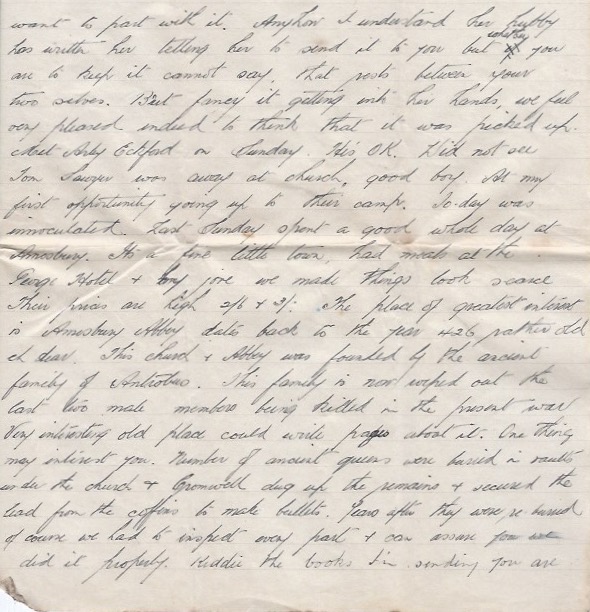 want to part with it. Anyhow I understand her hubby
has written her telling her to send it to you but whether you
are to keep it cannot say, that rests between your
two selves. But fancy it getting into her hands, we feel
very pleased indeed to think that it was picked up.
Met Arty Eckford on Sunday. He's OK. Did not see
Tom Sawyer was away at church, good boy. At my
first opportunity going up to their camp. To-day was
innoculated. Last Sunday spent a good whole day at
Amesbury. It's a fine little town, had meals at the
George Hotel & by jove we made things look scarce
Their prices are high 2/6 & 3/-. The place of greatest interest
is Amesbury Abbey dates back to the year 426 rather old
eh dear. This church & Abbey was founded by the ancient
family of Antrobus. This family is now wiped out the
last two male members being killed in the present war
Very interesting old place could write pages about it. One thing
may interest you. Number of ancient queens were buried in vaults
under the church & Cromwell dug up the remains & secured the
lead from the coffins to make bullets. Years after they were re buried
of course we had to inspect every part & can assure you we
did it properly. Kiddie the books I'm sending you are